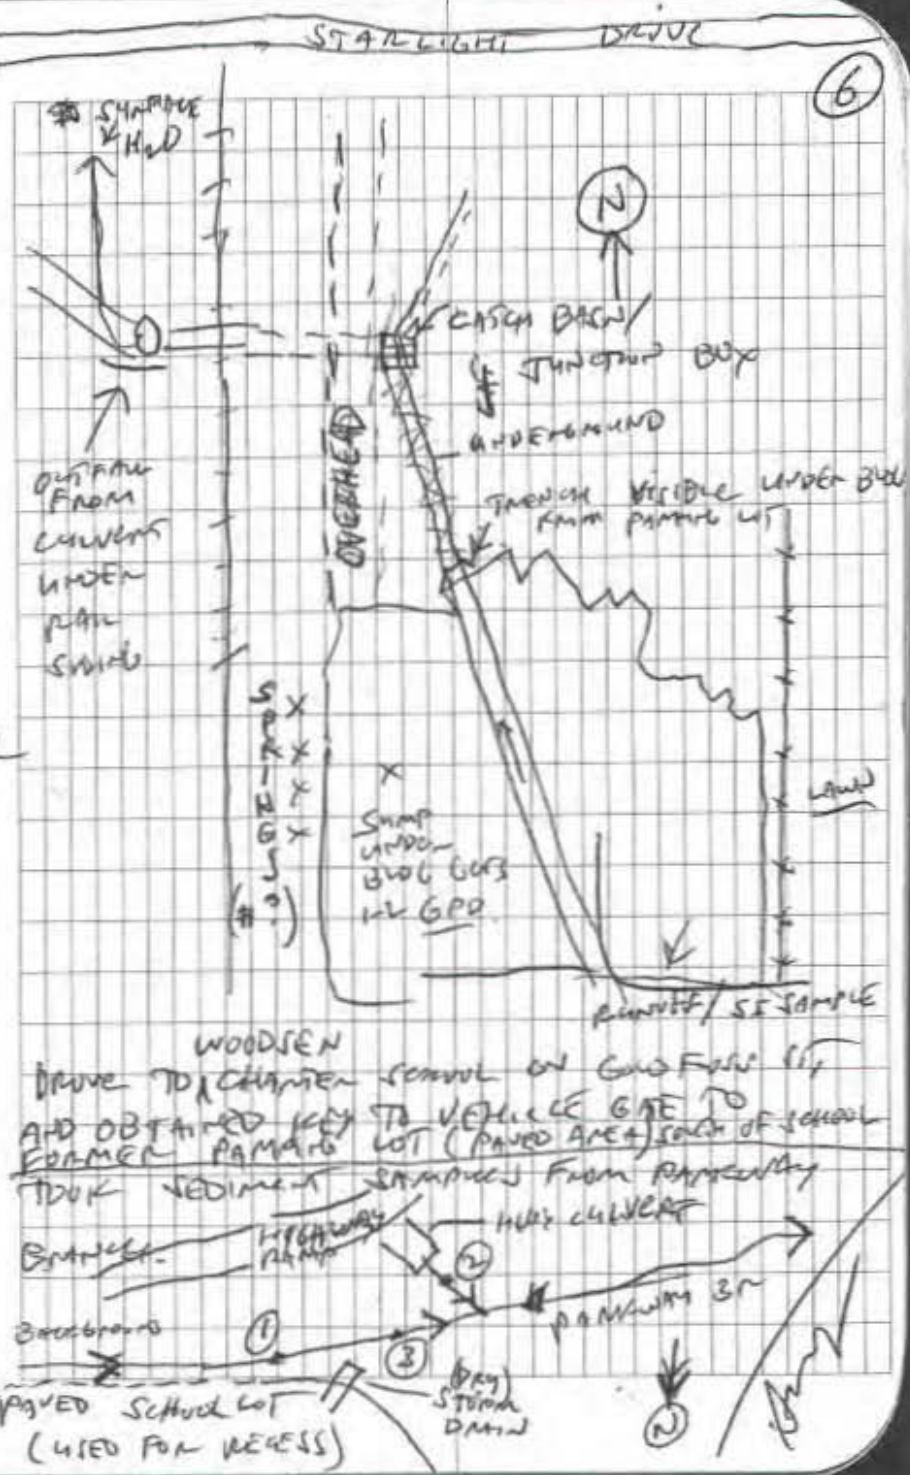 STARLIGHT DRIVE
6
SURFACE
H2O
N
CATCH BASIN/
JUNCTION BOX
UNDERGROUND
OVERHEAD
TRENCH VISIBLE UNDER BLDG
FROM PARKING LOT
OUTFALL
FROM
CULVERT
UNDER
RAIL
SIDING
SPRINGS
(#?)
X
X
X
X
X
SUMP
UNDER
BLDG GETS
1-2 GPD
LAWN
RUNOFF/SS SAMPLE
WOODSEN
DROVE TO CHARTER SCHOOL ON GOLD FUSS ST,
AND OBTAINED KEY TO VEHICLE GATE TO
FORMER PARKING LOT (PAVED AREA) SOUTH OF SCHOOL
TOOK SEDIMENT SAMPLES FROM PARKWAY
BRANCH.
HIGHWAY
RAMP
HWY CULVERT
2
PARKWAY BR
BACKGROUND
1
3
(DRY)
STORM
DRAIN
N
PAVED SCHOOL LOT
(USED FOR RECESS)